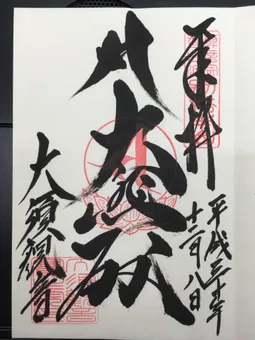 奉拝
平成三十年
十二月八日
大悲殿
大須観音